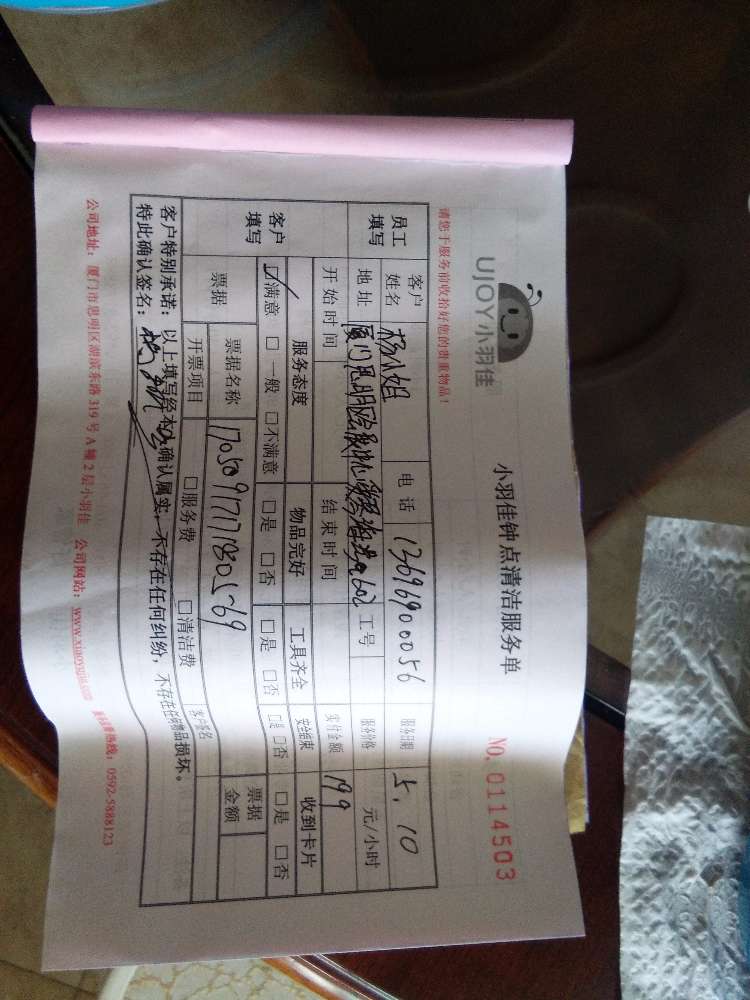 UJOY小羽佳
小羽佳钟点清洁服务单
NO. 0114503
请您于服务前收拾好您的贵重物品！
员工填写
客户姓名 杨小姐 电话 13696900056 服务日期 5.10
地址 厦门思明区 602 工号 服务价格 元/小时
开始时间 结束时间 实付金额 199
客户填写
服务态度 物品完好 工具齐全 安全结束 收到卡片
☑满意 □一般 □不满意 □是 □否 □是 □否 □是 □否 □是 □否
票据 票据名称 17050917171805-69 客户签名 票据金额
开票项目 □服务费 □清洁费
客户特别承诺：以上填写经本人确认属实，不存在任何纠纷，不存在任何物品损坏。
特此确认签名：
公司地址：厦门市思明区湖滨东路319号A幢2层小羽佳 公司网站：www.xiaoyujia.com 服务热线：0592-5888123